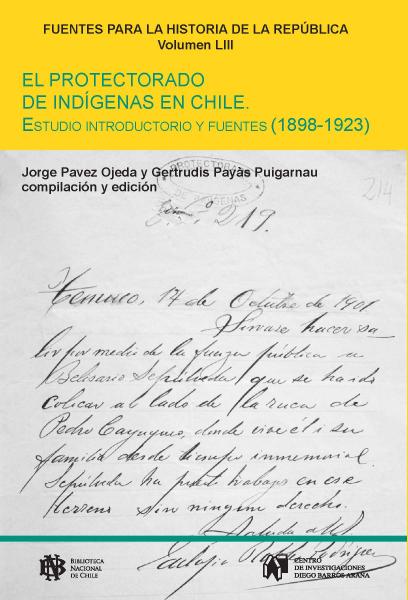 FUENTES PARA LA HISTORIA DE LA REPÚBLICA
Volumen LIII
EL PROTECTORADO
DE INDÍGENAS EN CHILE.
ESTUDIO INTRODUCTORIO Y FUENTES (1898-1923)
Jorge Pavez Ojeda y Gertrudis Payàs Puigarnau
compilación y edición
PROTECTORADO
DE INDÍGENAS
214
219.
Temuco, 17 de Octubre de 1901
Sirvase hacer sa
lir por medio de la fuerza pública a
Belisario Sepúlveda, que se ha ido
colocar al lado de la ruca de
Pedro Cayuqueo, donde vive él i su
familia desde tiempo inmemorial.
Sepúlveda ha puesto trabajo en ese
terreno sin ningun derecho.
Saluda a Ud.
Eulojio Robles Rodríguez
BIBLIOTECA
NACIONAL
DE CHILE
CENTRO
DE INVESTIGACIONES
DIEGO BARROS ARANA